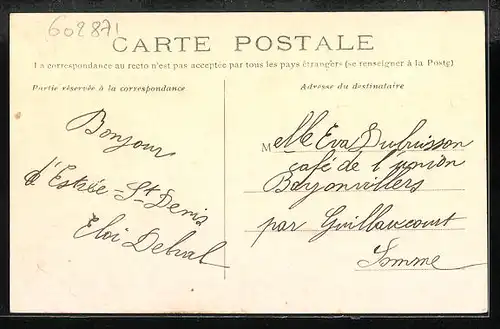 602871
CARTE POSTALE
La correspondance au recto n'est pas acceptée par tous les pays étrangers (se renseigner à la Poste)
Partie réservée à la correspondance
Adresse du destinataire
Bonjour
d'Estrée-St-Denis
Eloi Debral
Melle Eva Dubuisson
café de l'union
Bayonvillers
par Guillaucourt
Somme